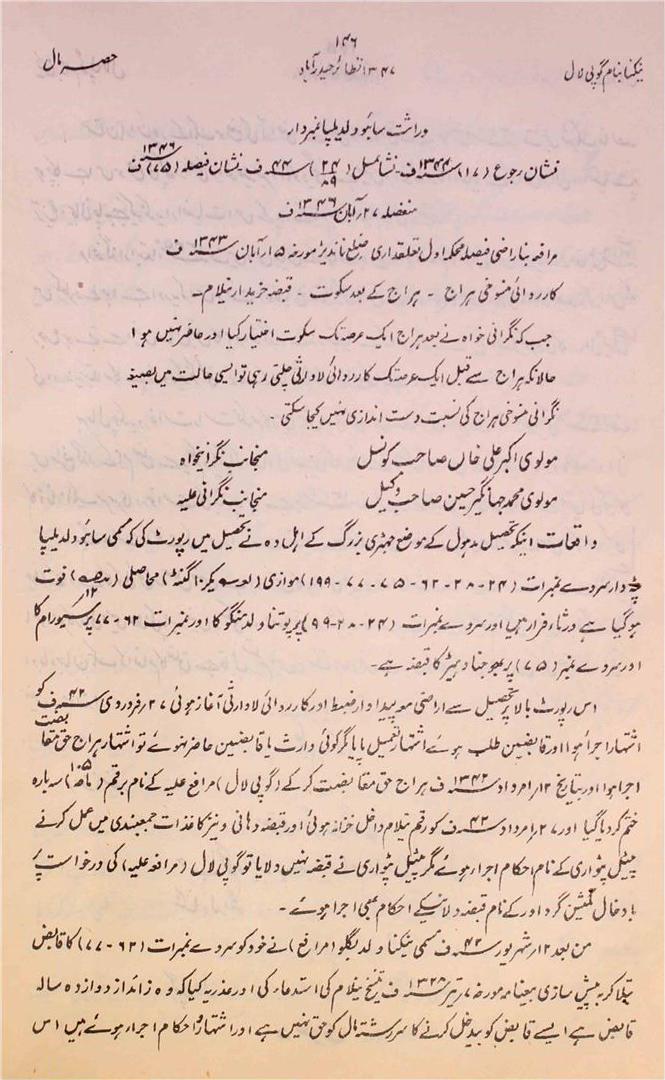 ۱۴۶
نیکنا بنام گوپی لال ۱۳۴۷ نظائر حیدرآباد حصہ مال
وراثت سابو ولد یلپا نمبردار
نشان رجوع (۱۷) ۱۳۴۴ ف۔ نشانمثل (۲۴/۸۹) ۴۴ ف نشان فیصلہ (۷۵) ۱۳۴۶ ف
منفصلہ ۲۷ آبان ۱۳۴۶ ف
مرافعہ بناراضی فیصلہ محکمہ اول تعلقداری ضلع ناندیڑ مورخہ ۱۵ آبان ۱۳۴۳ ف
کارروائی منسوخی ہراج ۔ ہراج کے بعد سکوت ۔ قبضہ خریدار نیلام ۔
جب کہ نگرانی خواہ نے بعد ہراج ایک عرصہ تک سکوت اختیار کیا اور حاضر نہیں ہوا
حالانکہ ہراج سے قبل ایک عرصہ تک کارروائی لاوارثی چلتی رہی تو ایسی حالت میں بصیغہ
نگرانی منسوخی ہراج کی نسبت دست اندازی نہیں کیجا سکتی ۔
مولوی اکبر علی خاں صاحب کونسل منجانب نگرانیخواہ
مولوی محمد جہانگیر حسین صاحب وکیل منجانب نگرانی علیہ
واقعات اینکہ تحصیل مدہول کے موضع مہٹری بزرگ کے اہل دہ نے تحصیل میں رپورٹ کی کہ مسمی سابو ولد یلپا
پٹہ دار سروے نمبرات (۲۴-۲۸-۶۲-۷۵-۷۷-۱۹۹) موازی ( ۱۰ گنٹہ) محاصلی فوت
ہوگیا ہے ورثاء فرار ہیں اور سروے نمبرات (۲۴-۲۸-۹۹) پر پوتنا ولد منگو کا اور نمبرات ۶۲-۷۷ پر سیورام کا
اور سروے نمبر (۷۵) پر بھوجنا دہیڑ کا قبضہ ہے۔
اس رپورٹ بالا پر تحصیل سے اراضی معہ پیداوار ضبط اور کارروائی لاوارثی آغاز ہوئی ۲۷ فروردی ۴۲ ف کو
اشتہار اجرا ہوا اور قابضین طلب ہوئے اشتہار تعمیل پایا مگر کوئی وارث یا قابضین حاضر نہوئے تو اشتہار ہراج حق مقابضت
اجرا ہوا اور بتاریخ ۱۲ امرداد ۱۳۴۲ ف ہراج حق مقابضت کر کے (گوپی لال) مرافع علیہ کے نام بر قم (۱۰۵) سہ بارہ
ختم کر دیا گیا اور ۲۷ امرداد ۴۲ ف کو رقم نیلام داخل خزانہ ہوئی اور قبضہ دہانی و نیز کاغذات جمعبندی میں عمل کرنے
پٹیل پٹواری کے نام احکام اجراء ہوئے مگر پٹیل پٹواری نے قبضہ نہیں دلایا تو گوپی لال (مرافعہ علیہ) کی درخواست پر
بادخال کمیشن گرداور کے نام قبضہ دلانیکے احکام بھی اجرا ہوئے ۔
من بعد ۱۲ شہریور ۴۲ ف مسمی نیکنا ولد یگلو (مرافع) نے خود کو سروے نمبرات (۶۲-۷۷) کا قابض
بتلا کر بہ پیش سازی بیعنامہ مورخہ ۷ تیر ۱۳۲۸ ف تنسیخ نیلام کی استدعاء کی اور عذر یہ کیا کہ وہ زائد از دوازدہ سالہ
قابض ہے ایسے قابض کو بیدخل کرنے کا سررشتہ مال کو حق نہیں ہے اور اشتہار و احکام اجراء ہوئے ہیں اس